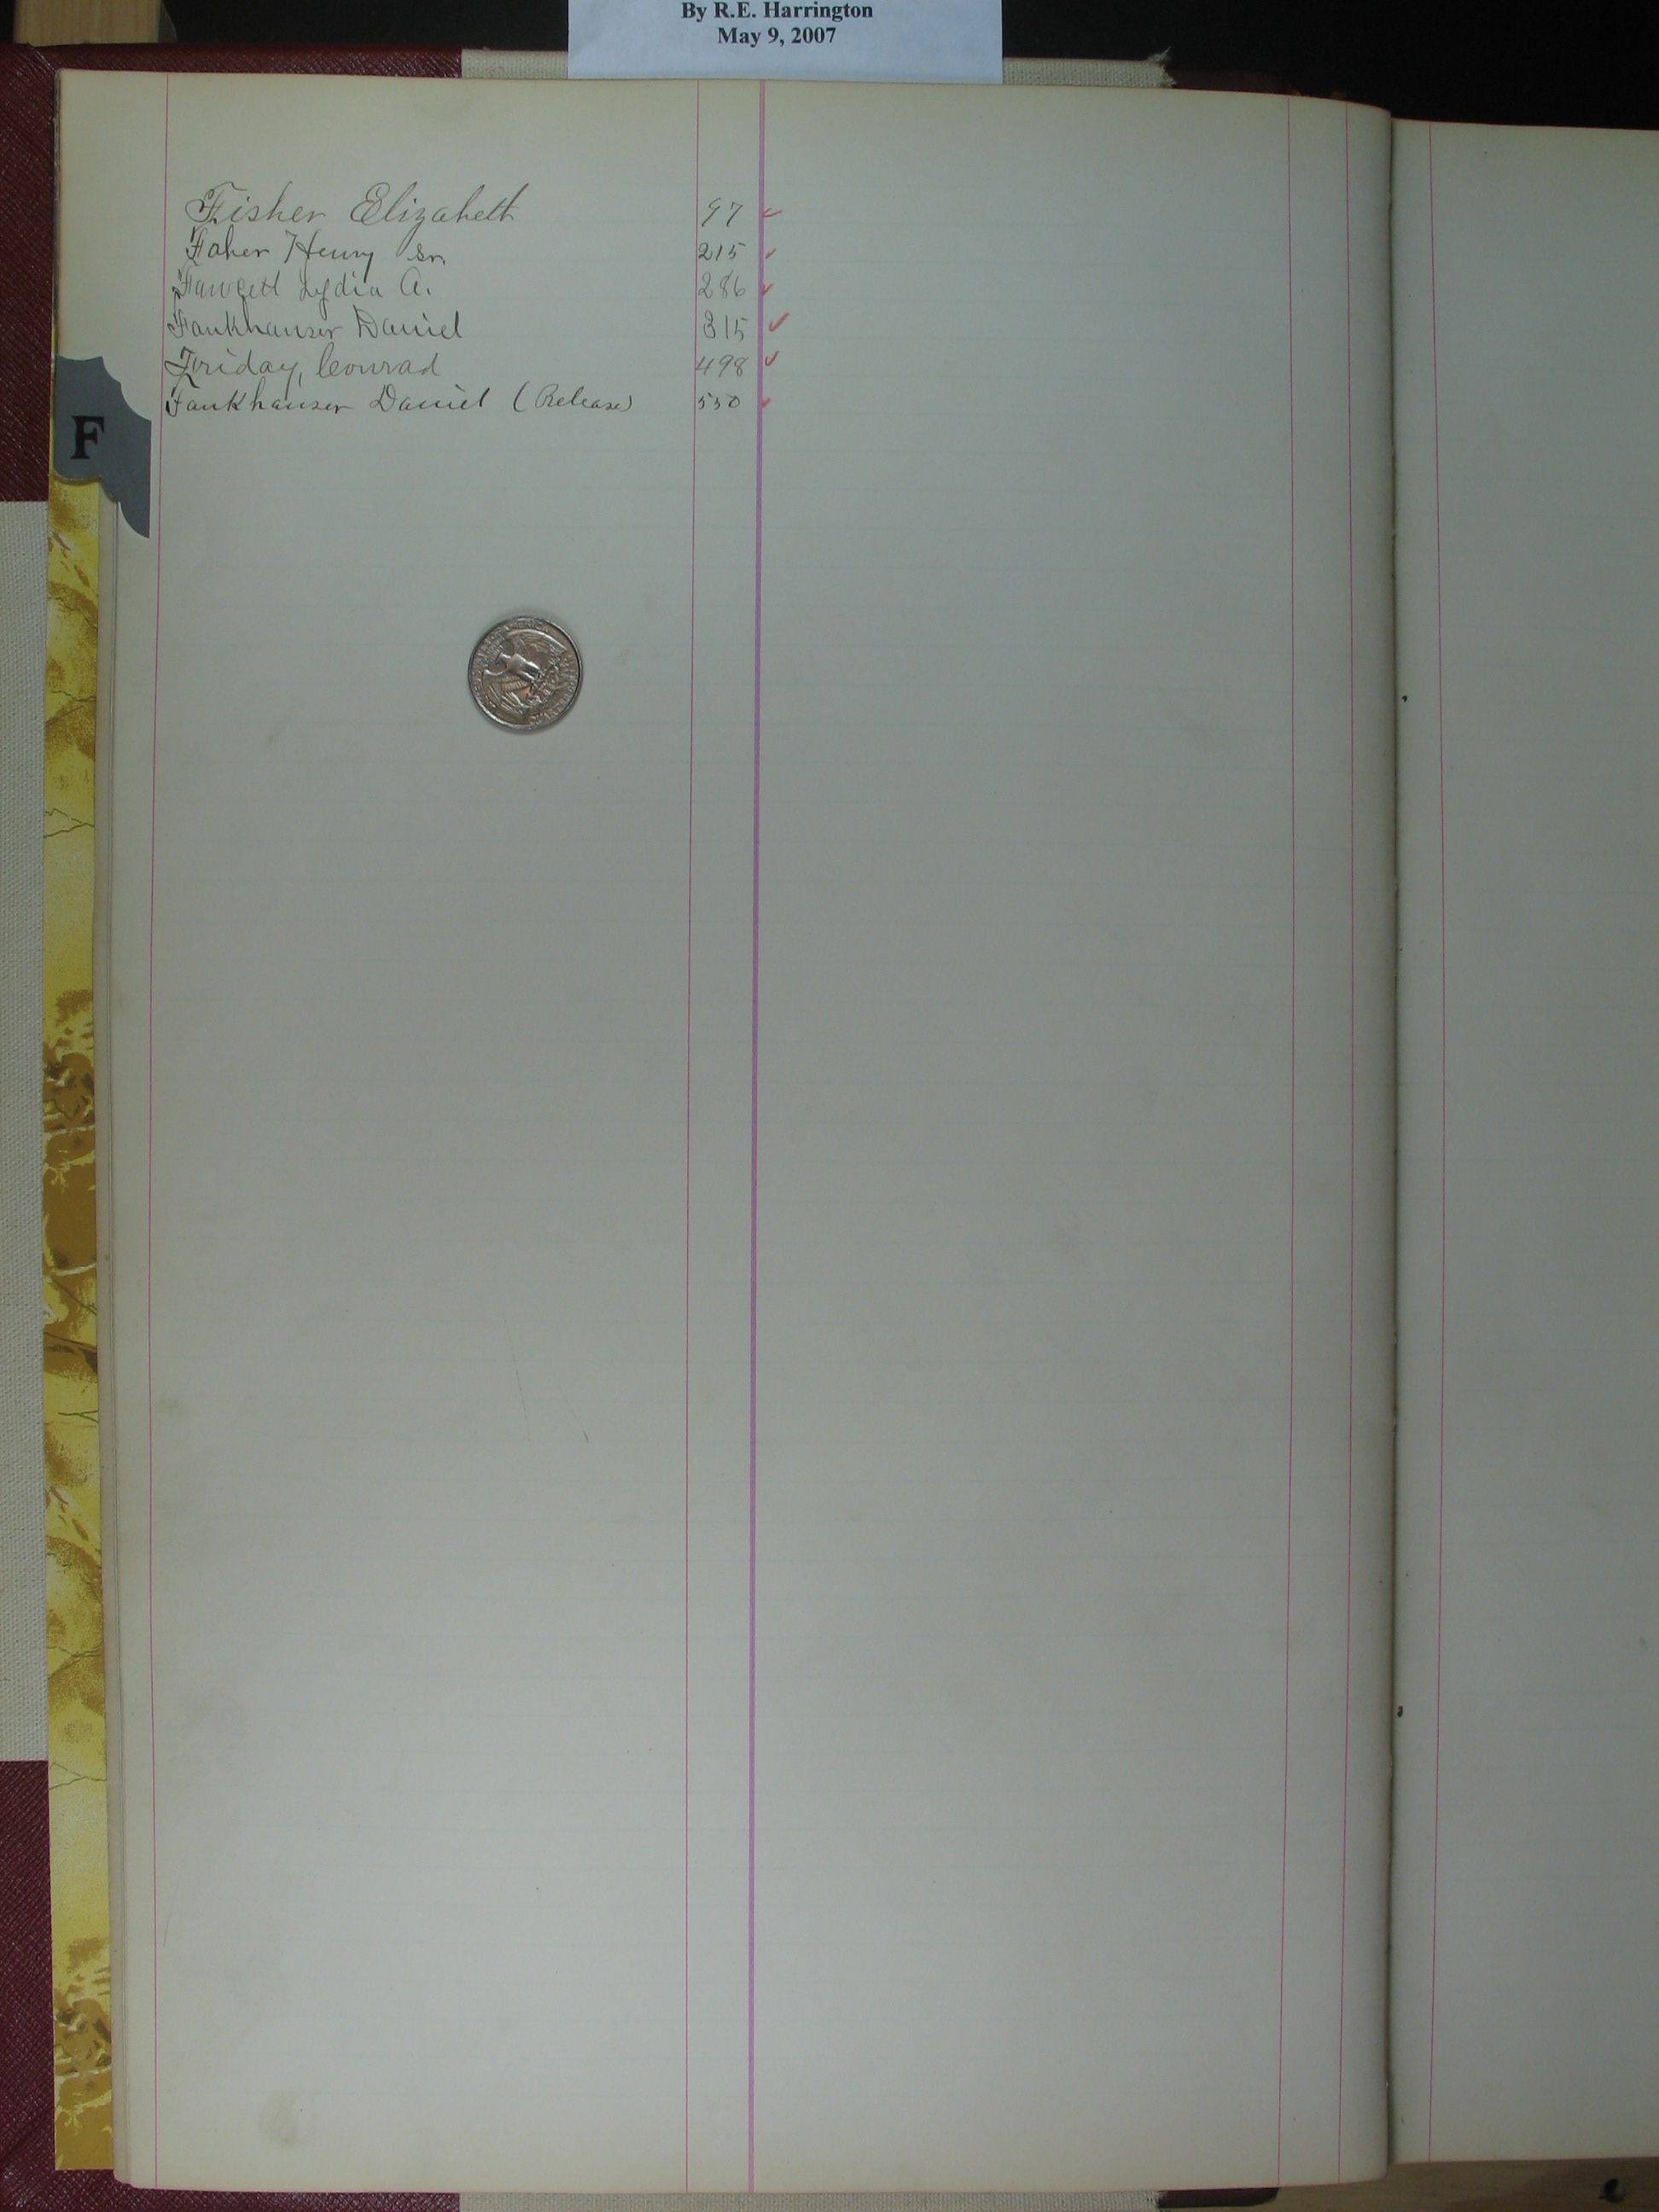 By R.E. Harrington
May 9, 2007
Fisher Elizabeth 97
Faher Henry Sr. 215
Fawcett Lydia A. 286
Fankhauser Daniel 315
Friday, Conrad 498
Fankhauser Daniel (Release) 550
F